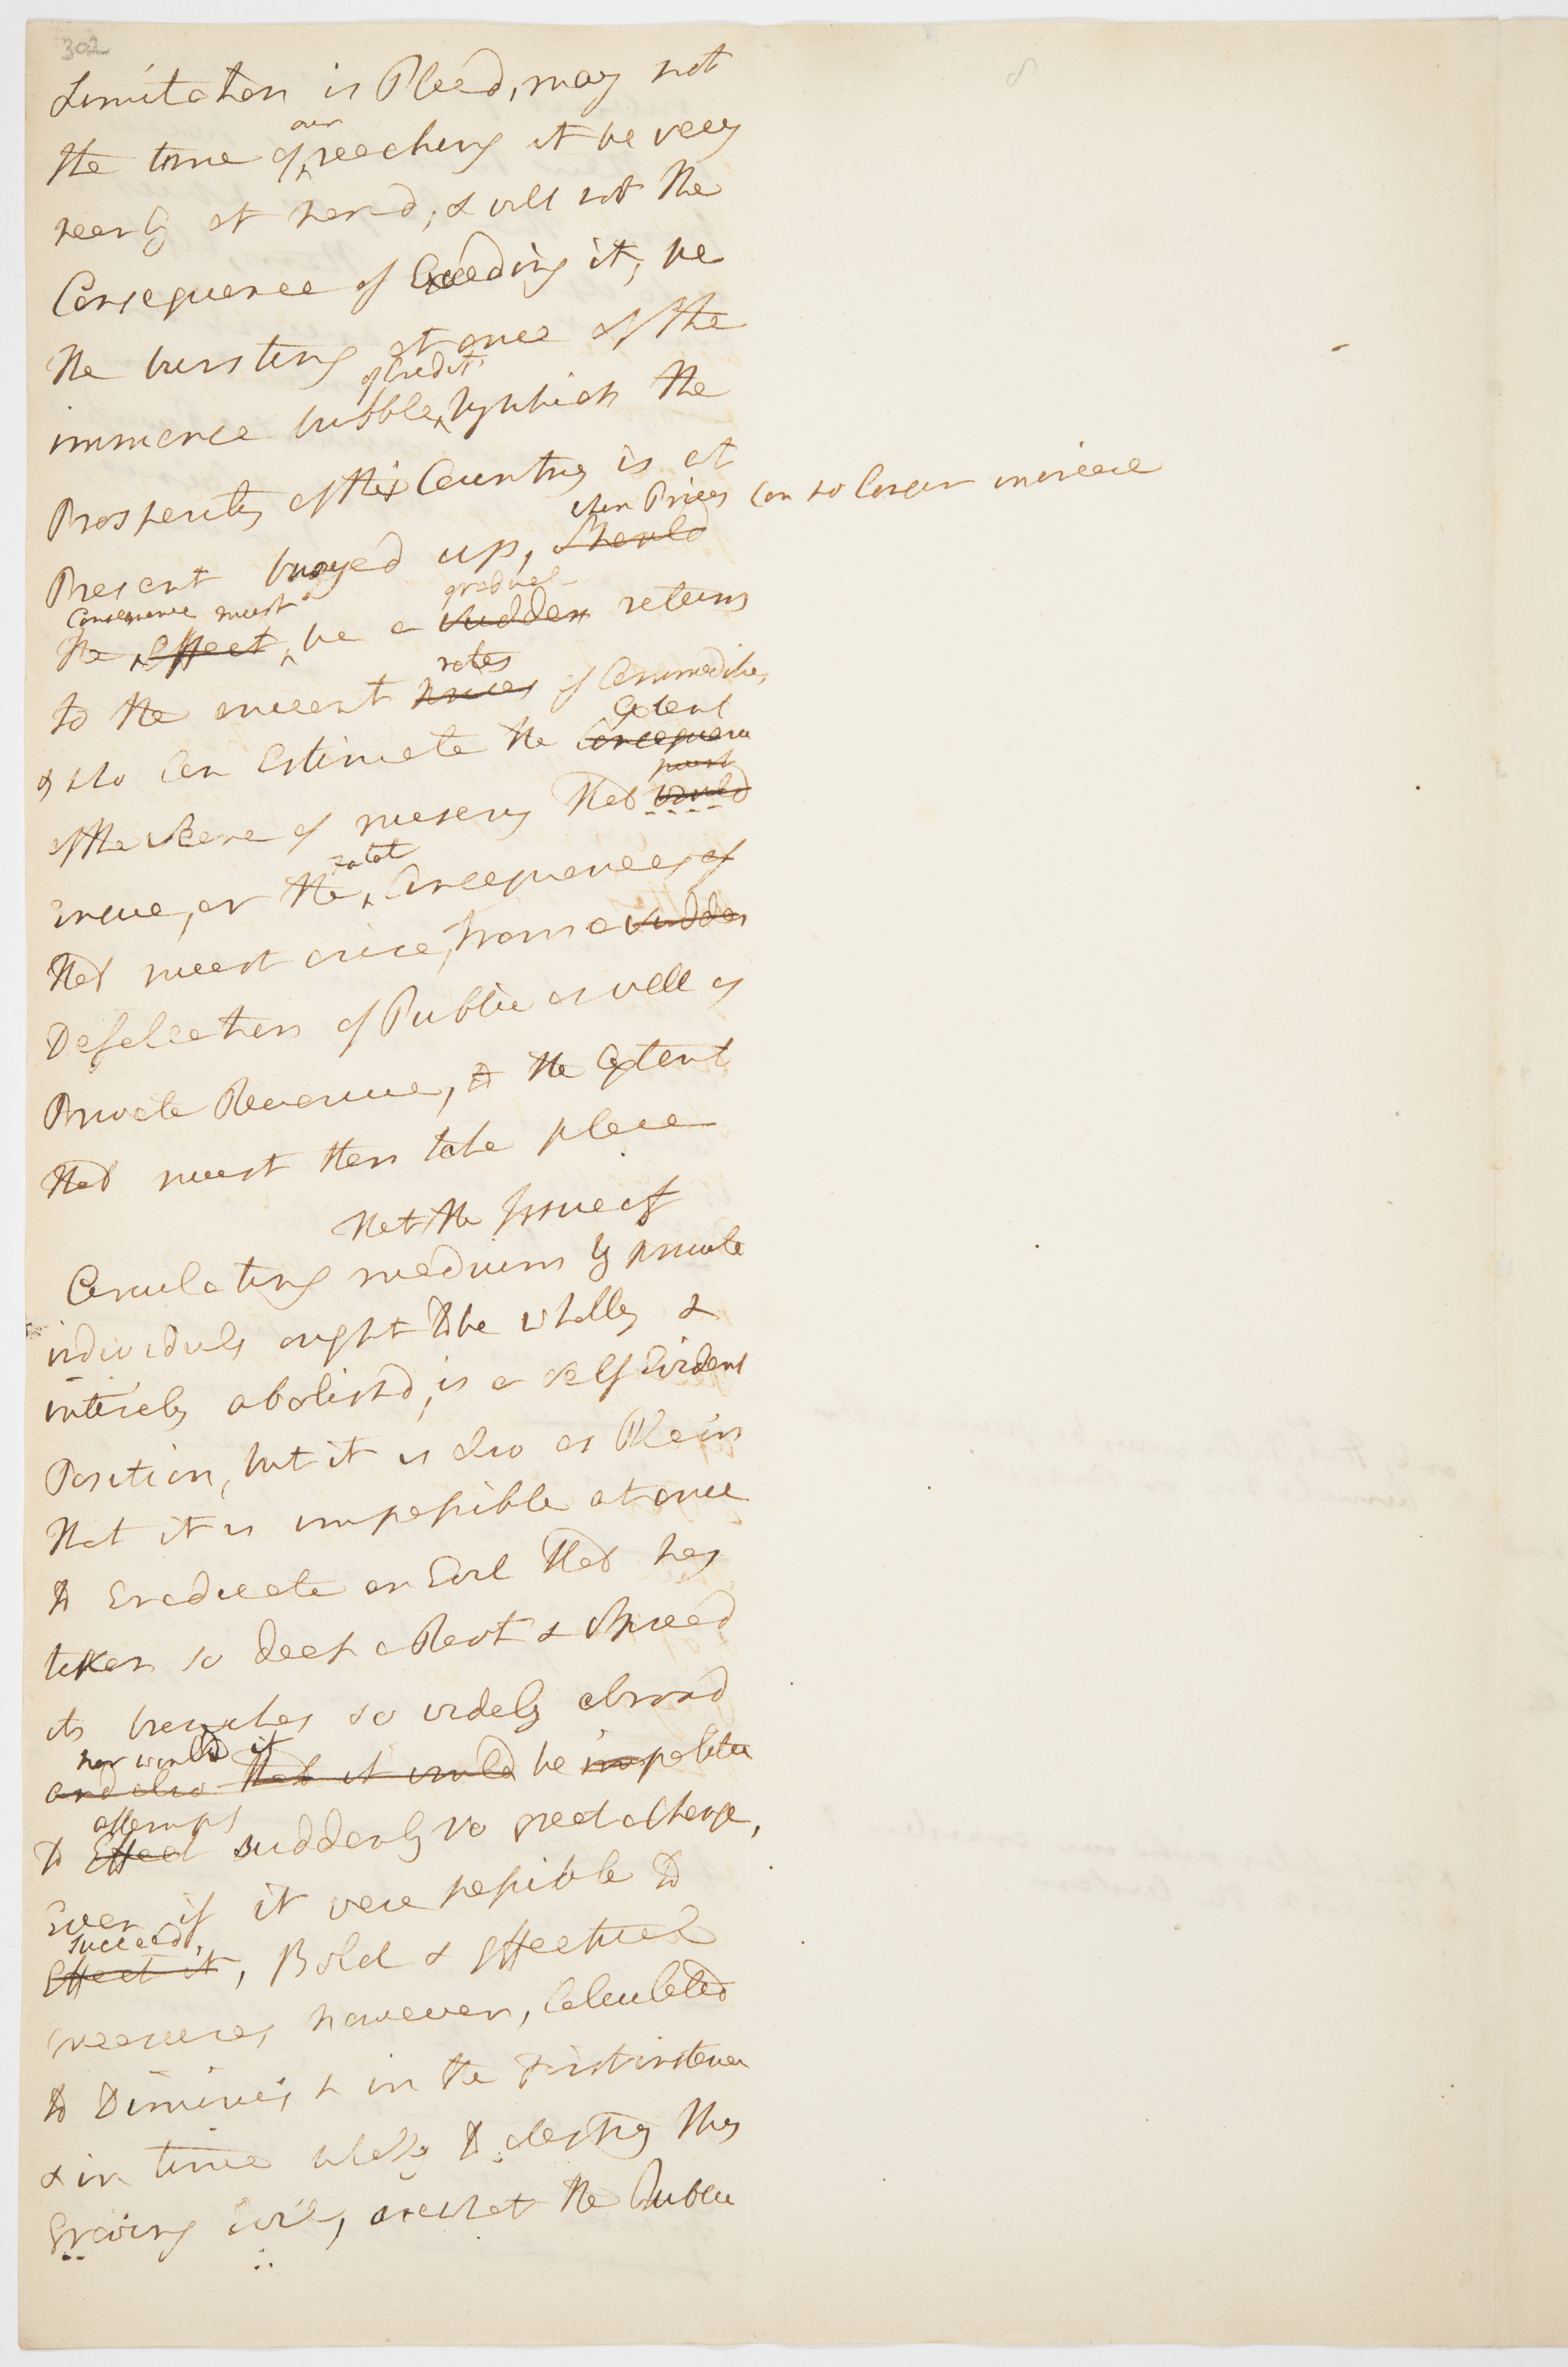 302
Limitation is Placd, may not
the time of our reaching it be very
nearly at hand, & will not the
Consequence of Exceeding it, be
the bursting at once of the
immence bubble of Credit by which the
Prosperity of this Country is at
Present buoyed up, should when Prices can no longer increase
the Effect Consequence must be a sudden gradual return
to the ancient prices rates of Commodities
& who Can Estimate the Consequence Extent
of the scene of misery that would must
ensue, or the fatal Consequences of
that must arise, from a sudden
Defalcation of Public as well as
Private Revenue, to the Extent
that must then take place
That the Issue of
Circulating medium by private
individuals ought to be wholly &
intirely abolishd, is a self Evident
Position, but it is also as Plain
that it is impossible at once
to Eradicate an Evil that has
taken so deep a Root & spread
its branches so widely abroad
and also that it would nor would it be impolitic
to Effect attempt suddenly so great a Change,
Even if it were possible to
Effect it succeed, Bold & Effectual
measures however, Calculated
to Diminish in the First instance
& in time wholly to destroy this
Growing Evil, are what the Public